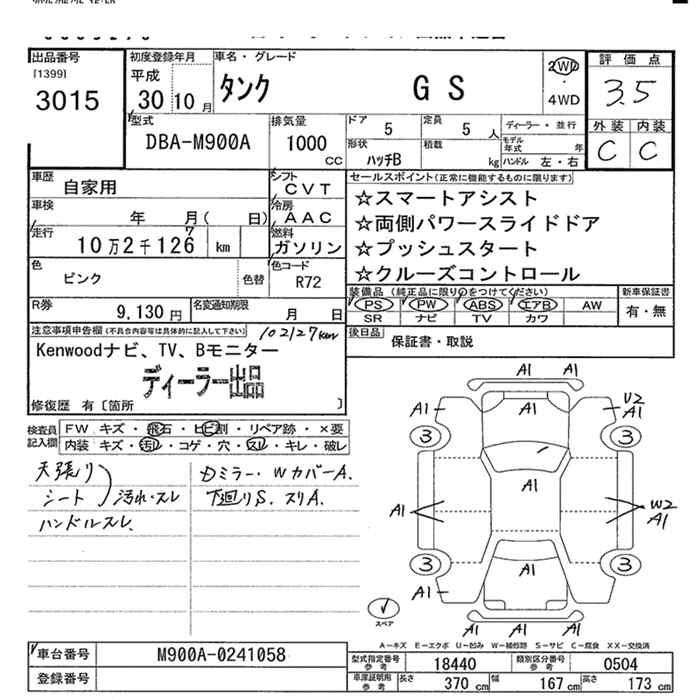 出品番号
[1399]
3015
初度登録年月
平成
30年10月
車名・グレード
タンク GS
2WD
・
4WD
評価点
3.5
外装 内装
C C
型式
DBA-M900A
排気量
1000
CC
ドア
5
定員
5人
ディーラー・並行
形状
ハッチB
積載
kg
モデル年式
年
ハンドル 左・右
車歴
自家用
シフト
CVT
車検
年 月( 日)
冷房
AAC
走行
10万2千126 km
7
燃料
ガソリン
色
ピンク
色替
色コード
R72
セールスポイント(正常に機能するものに限ります)
☆スマートアシスト
☆両側パワースライドドア
☆プッシュスタート
☆クルーズコントロール
R券
9,130円
名変通知期限
月 日
装備品(純正品に限り○をつけてください)
PS PW ABS エアB AW
SR ナビ TV カワ
新車保証書
有・無
後日品
保証書・取説
注意事項申告欄(不具合内容等は具体的に記入して下さい)
102127km
Kenwoodナビ、TV、Bモニター
ディーラー出品
修復歴 有〔箇所 〕
検査員
記入欄
FW キズ・飛石・ヒビ割・リペア跡・×要
内装 キズ・汚れ・コゲ・穴・スレ・キレ・破レ
天張り
シート
汚れ・スレ
ハンドルスレ
Dミラー・WカバーA.
下廻りS. スリA.
A1 A1
A1
A1
U2
A1
3 3
A1
A1
W2
A1
3 3
A1
A1
A1
A1
スペア
A-キズ E-エクボ U-凹み W-補修跡 S-サビ C-腐食 XX-交換済
車台番号
M900A-0241058
登録番号
型式指定番号
参考
18440
類別区分番号
参考
0504
車庫証明用
参考
長さ
370 cm
幅
167 cm
高さ
173 cm